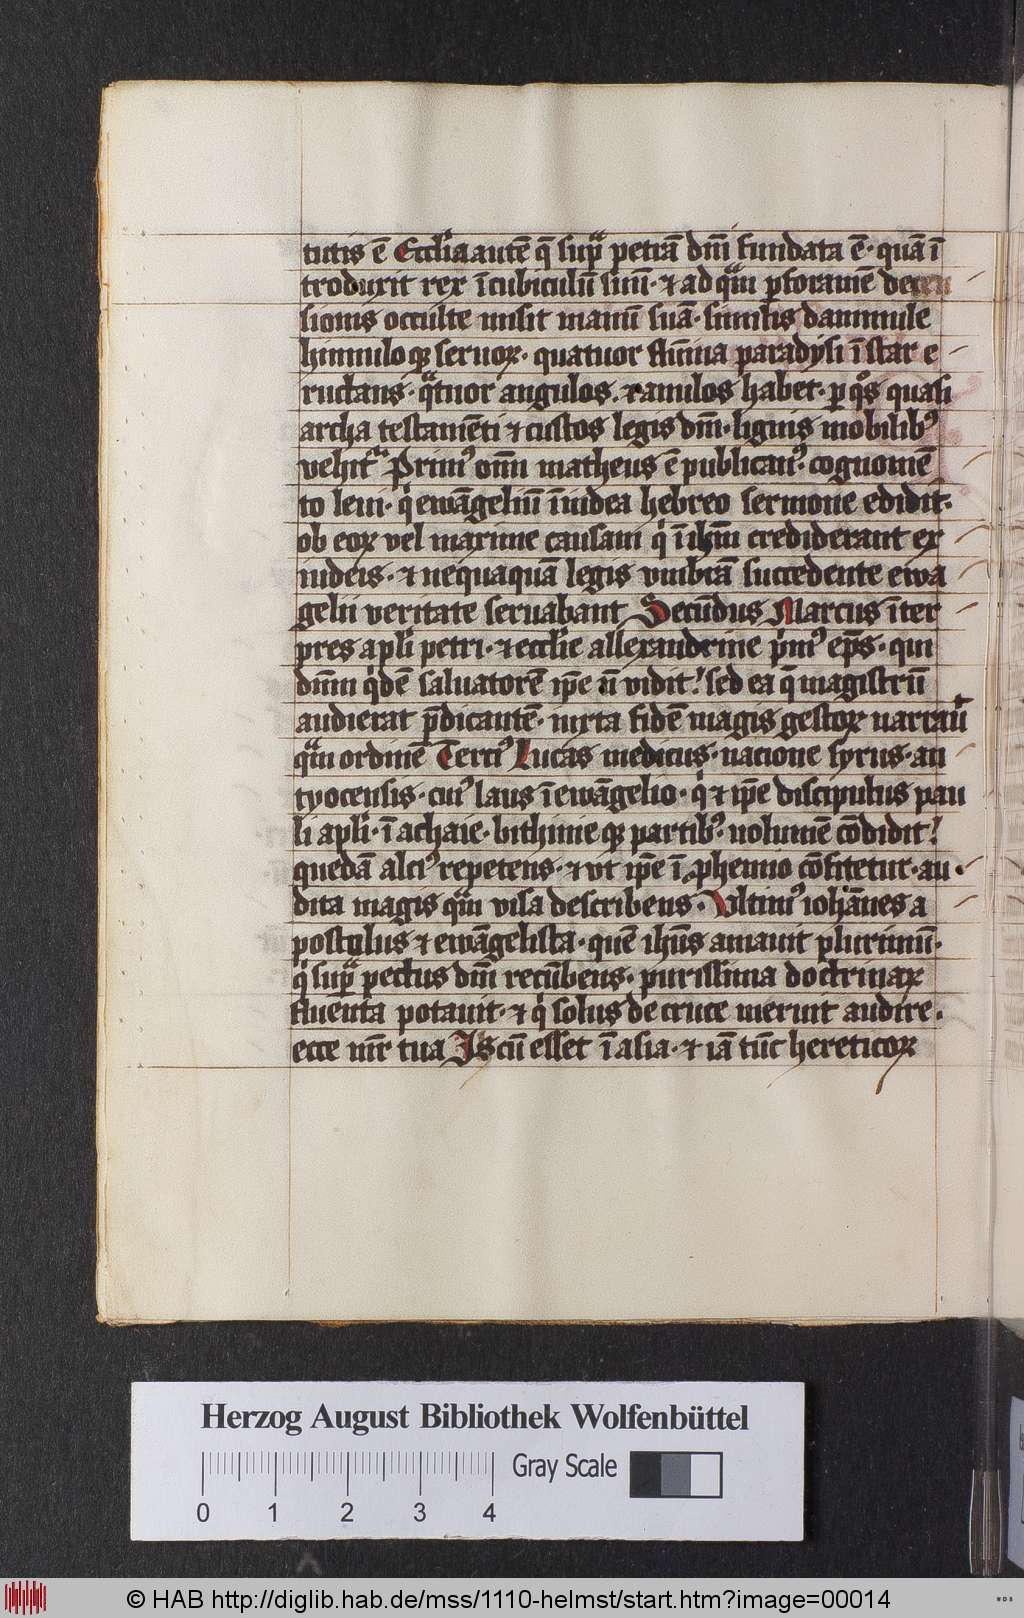 tutis ē Eccl̄ia autē q̄ sup̄ petrā dn̄i fundata ē· quā ī
troduxit rex ī cubiculū suū· ⁊ ad quā p̱ foramē decen
sionis occulte misit manū suā· similis dammule
hinnulo qꝫ seruoꝝ· quatuor flūina paradysi īstar e
ructans· qͣtuor angulos ⁊ ramulos habet· ꝑ qͦs quasi
archa testamēti ⁊ custos legis dn̄i· lignis mobilibꝰ
vehitᷣ Primꝰ om̄i matheus ē publicanꝰ· cognomē
to leui· qͥ ewāgeliū ī iudea hebreo sermone edidit·
ob eoꝝ vel maxime causam qͥ ī ihm̄ crediderant ex
iudeis· ⁊ nequaquā legis vmbrā succedente ewa
gelii veritate seruabant Secūdus Marcus īter
pres apl̄i petri· ⁊ eccl̄ie allexandrine pͥmꝰ ep̄s· qui
dn̄m qͥdē saluatorē ip̄e n̄ vidit! sed ea q̄ magistrū
audierat p̄dicantē· iuxta fidē magis gestoꝝ narrauͥt
qͣm ordinē Terciꝰ Lucas medicus· nacione syrus· an
tyocensis· cuiꝰ laus ī ewāgelio· qͥ ⁊ ip̄e discipulus pau
li apl̄i· ī achaie· bithinie qꝫ partibꝰ· uolumē cōdidit!
quedā alciꝰ repetens· ⁊ vt ip̄e ī phemio cōfitetur· au·
dita magis qͣm visa describens· Vltimꝰ iohānes a
postolus ⁊ ewāgelista· quē ihūs amauit plurimū·
qͥ sup̄ pectus dn̄i recūbens· purissima doctrinaꝝ
fluēnta potauit· ⁊ qͥ solus de cruce meruit audire·
ecce mr̄ tua Is cū esset ī asia· ⁊ iā tūc hereticoꝝ
Herzog August Bibliothek Wolfenbüttel
Gray Scale
0 1 2 3 4
© HAB http://diglib.hab.de/mss/1110-helmst/start.htm?image=00014